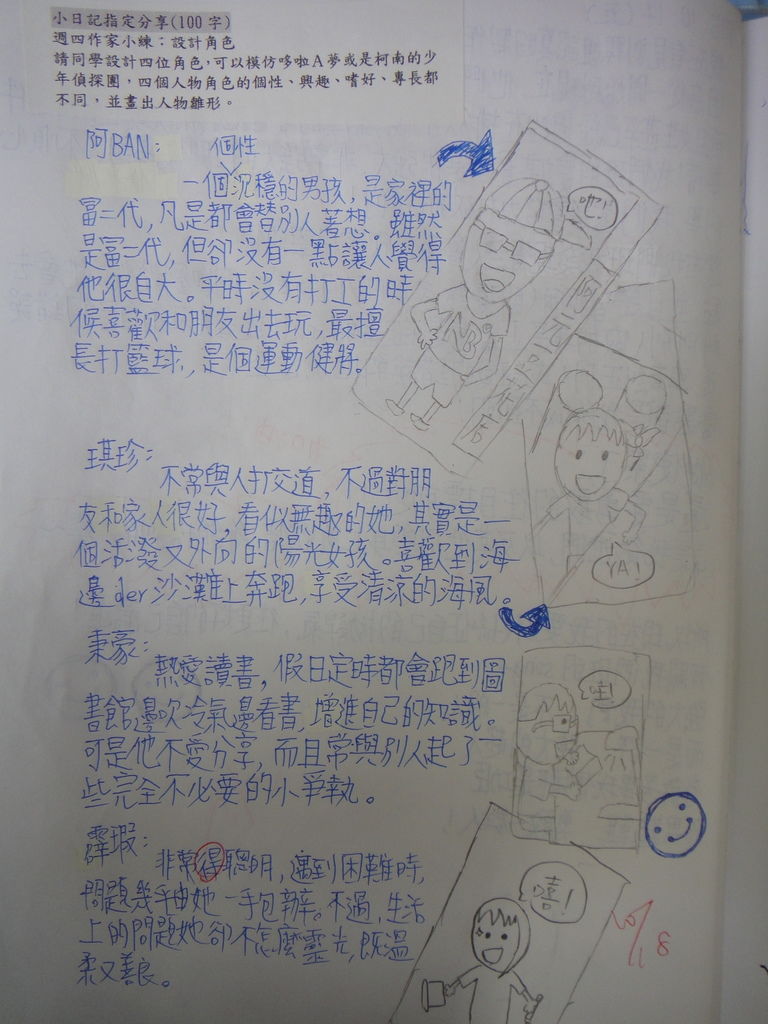 小日記指定分享(100字)
週四作家小練：設計角色
請同學設計四位角色，可以模仿哆啦A夢或是柯南的少
年偵探團，四個人物角色的個性、興趣、嗜好、專長都
不同，並畫出人物雛形。
阿BAN：
個性
一個沉穩的男孩，是家裡的
富二代，凡是都會替別人著想。雖然
是富二代，但卻沒有一點讓人覺得
他很自大。平時沒有打工的時
候喜歡和朋友出去玩，最擅
長打籃球，是個運動健將。
吧！
NB
琪珍：
不常與人打交道，不過對朋
友和家人很好，看似無趣的她，其實是一
個活潑又外向的陽光女孩。喜歡到海
邊der沙灘上奔跑，享受清涼的海風。
YA！
秉豪：
熱愛讀書，假日定時都會跑到圖
書館邊吹冷氣邊看書，增進自己的知識。
可是他不愛分享，而且常與別人起了一
些完全不必要的小爭執。
哇！
霹瑕：
非常得聰明，遇到困難時，
問題幾乎由她一手包辦。不過，生活
上的問題她卻不怎麼靈光，既溫
柔又善良。
嘻！
10/8